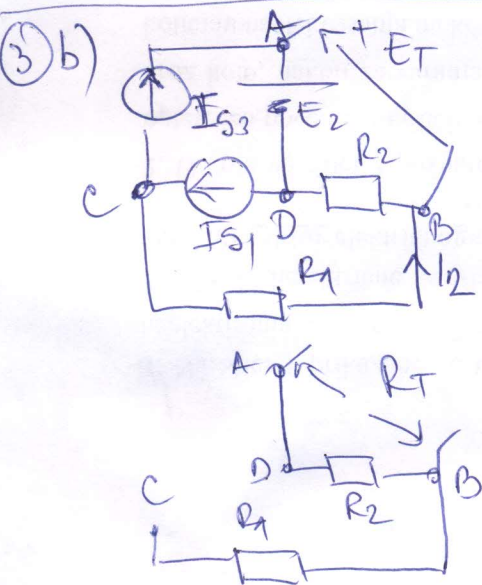 3 b)
A
+ E_T
I_S3
E_2
R_2
C
I_S1
D
B
R_1
I_2
A
R_T
D
R_2
B
C
R_1